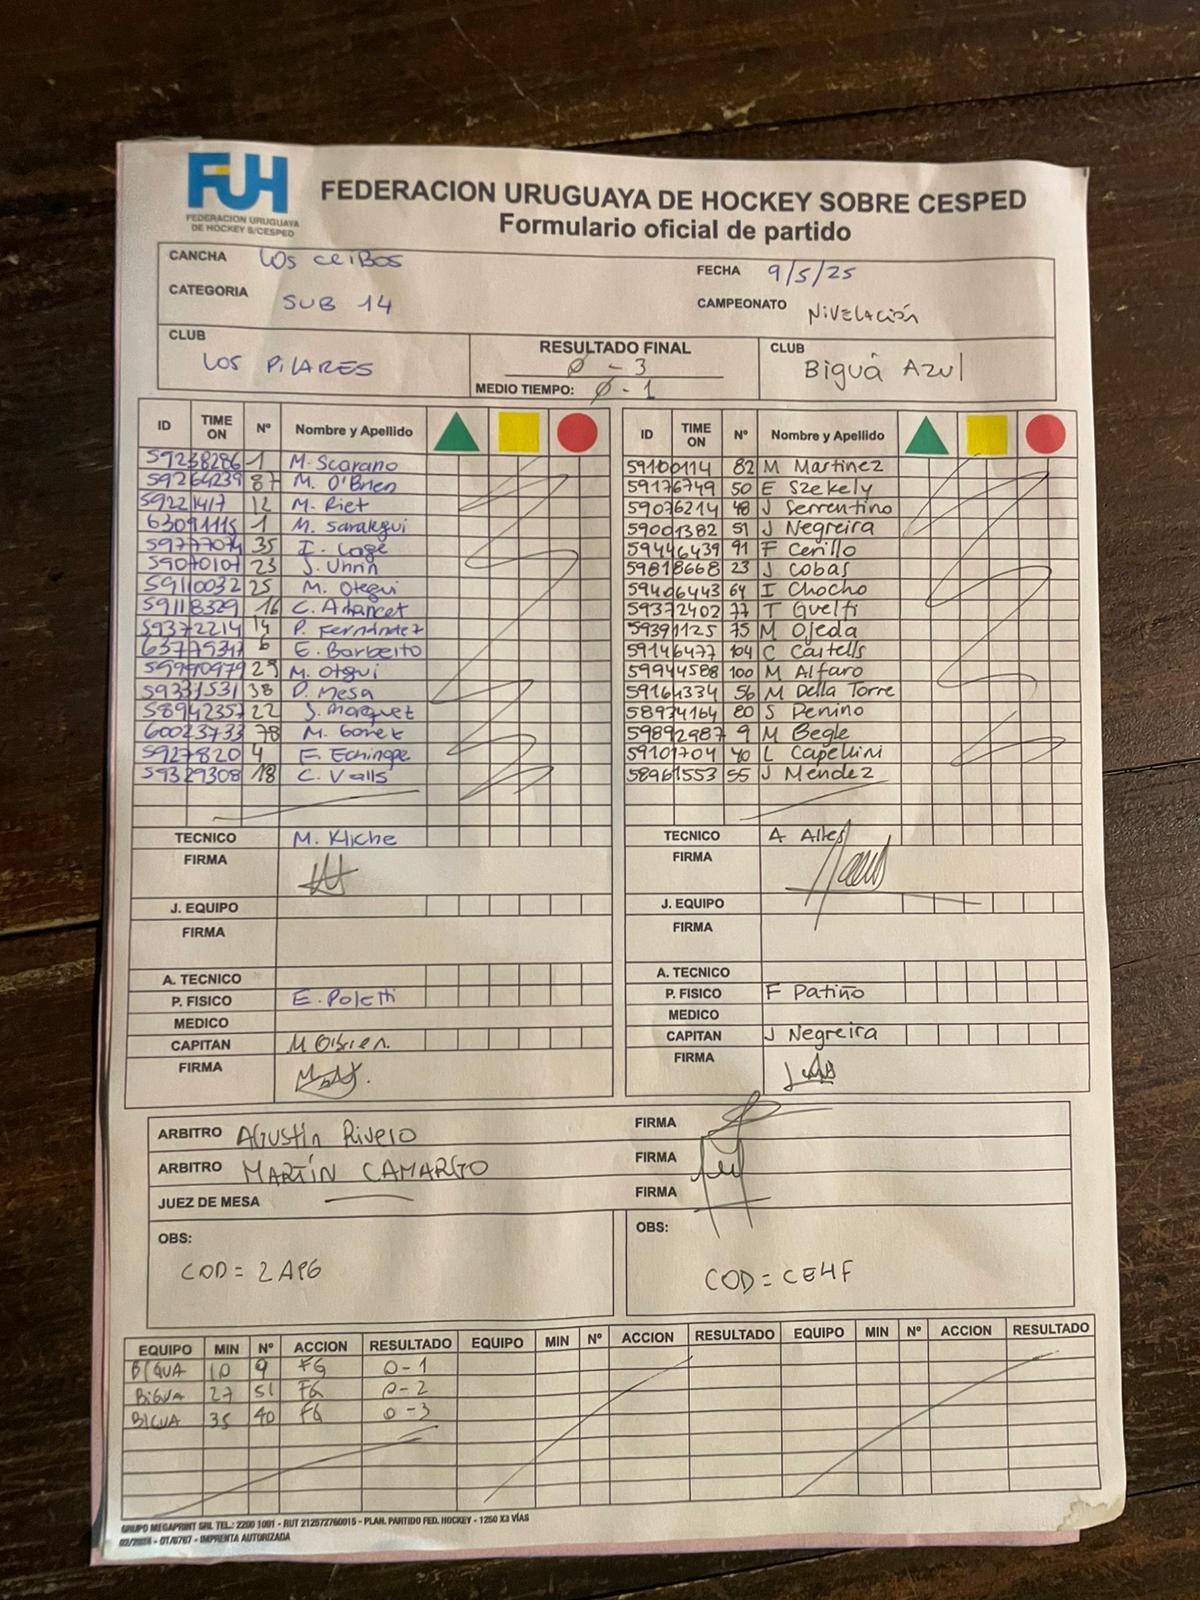 FUH
FEDERACION URUGUAYA
DE HOCKEY S/CESPED
FEDERACION URUGUAYA DE HOCKEY SOBRE CESPED
Formulario oficial de partido
CANCHA LOS CEIBOS
FECHA 9/5/25
CATEGORIA SUB 14
CAMPEONATO NIVELACIÓN
CLUB LOS PILARES
RESULTADO FINAL 0 - 3
MEDIO TIEMPO: 0 - 1
CLUB Biguá Azul
ID TIME ON Nº Nombre y Apellido
59238286 1 M. Scarano
59264239 87 M. O'Brien
59221417 12 M. Riet
63091115 1 M. Saralegui
59777074 35 I. Lage
59070107 23 J.
59110032 25 M. Otegui
59118329 16 C.
59372214 14 P. Fernández
6 E. Barbeito
59990979 29 M. Otgui
59331531 38 D. Mesa
58942357 22 J. Marquet
60023733 78 M.
5927820 4 E.
59329308 18 C. Valls
TECNICO M. Kliche
FIRMA
J. EQUIPO
FIRMA
A. TECNICO
P. FISICO E. Poletti
MEDICO
CAPITAN M O'Brien.
FIRMA
ID TIME ON Nº Nombre y Apellido
59100114 82 M Martinez
59176749 50 E Szekely
59076214 48 J Serrentino
59001382 51 J Negreira
59446439 91 F Cerillo
59818668 23 J Cobas
59406443 64 I Chocho
59372402 77 T Guelfi
59391125 75 M Ojeda
59146477 104 C Castells
59944588 100 M Alfaro
59164334 56 M Della Torre
58974164 80 S Penino
59892987 9 M Begle
59101704 40 L Capellini
58961553 55 J Mendez
TECNICO A Alles
FIRMA
J. EQUIPO
FIRMA
A. TECNICO
P. FISICO F Patiño
MEDICO
CAPITAN J Negreira
FIRMA
ARBITRO Agustín Rivero FIRMA
ARBITRO MARTÍN CAMARGO FIRMA
JUEZ DE MESA FIRMA
OBS:
COD = 2AP6
OBS:
COD = CE4F
EQUIPO MIN Nº ACCION RESULTADO EQUIPO MIN Nº ACCION RESULTADO EQUIPO MIN Nº ACCION RESULTADO
BIGUA 10 9 FG 0-1
BIGUA 27 51 FG 0-2
BIGUA 35 40 FG 0-3
GRUPO MEGAPRINT SRL TEL.: 2200 1001 - RUT 212572760015 - PLAN. PARTIDO FED. HOCKEY - 1250 X3 VÍAS
IMPRENTA AUTORIZADA